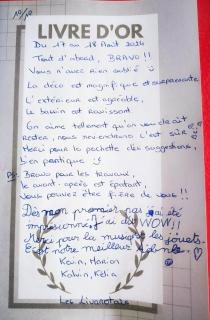 LIVRE D'OR
Du 17 au 18 Août 2024
Tout d'abord, BRAVO !!
Vous n'avez rien oublié
La déco est magnifique et surprenante
L'extérieur est agréable,
le bassin est ravissant.
On aime tellement qu'on voudrait
rester, nous reviendrons c'est sûr
Merci pour la pochette des suggestions,
c'en pratique
PS: Bravo pour les travaux,
le avant-après est épatant,
vous pouvez être fière de vous !!
Dès mon premier pas j'ai été
impressionnés, j'ai dit WOW !!
Merci pour la musique, les jouets.
C'est notre meilleur
Kevin, Marion
Kelvin, Kélia
Les